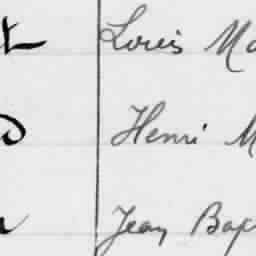 t Louis Ma
d Henri M
Jean Bap